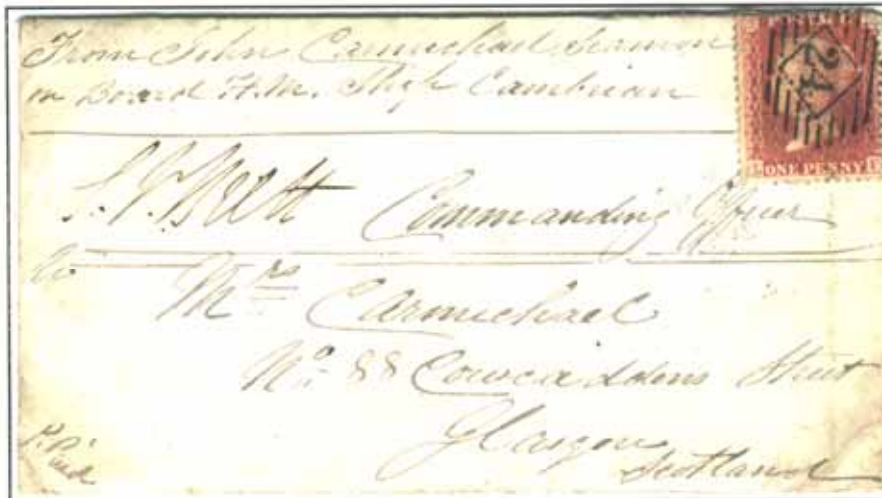 From John Carmichael Seaman
on Board H.M. Ship Cambrian
24
ONE PENNY
Commanding Officer
to
Mrs Carmichael
No. 88 Cowcaddens Street
Glasgow
Scotland